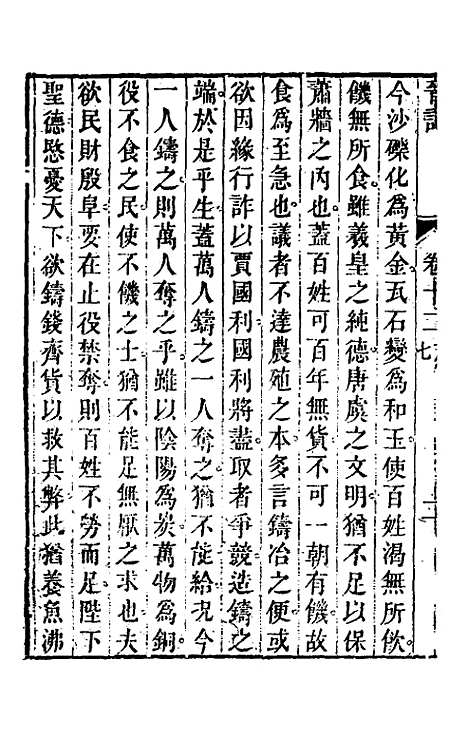 卷十二 七
今沙礫化爲黃金瓦石變爲和玉使百姓渴無所飮
饑無所食雖羲皇之純德唐虞之文明猶不足以保
蕭牆之內也蓋百姓可百年無貨不可一朝有饑故
食爲至急也議者不達農殖之本多言鑄冶之便或
欲因緣行詐以賈國利國利將盡取者爭競造鑄之
端於是乎生蓋萬人鑄之一人奪之猶不能給况今
一人鑄之則萬人奪之乎雖以陰陽爲炭萬物爲銅
役不食之民使不饑之士猶不能足無厭之求也夫
欲民財殷阜要在止役禁奪則百姓不勞而足陛下
聖德愍憂天下欲鑄錢齊貨以救其弊此猶養魚沸